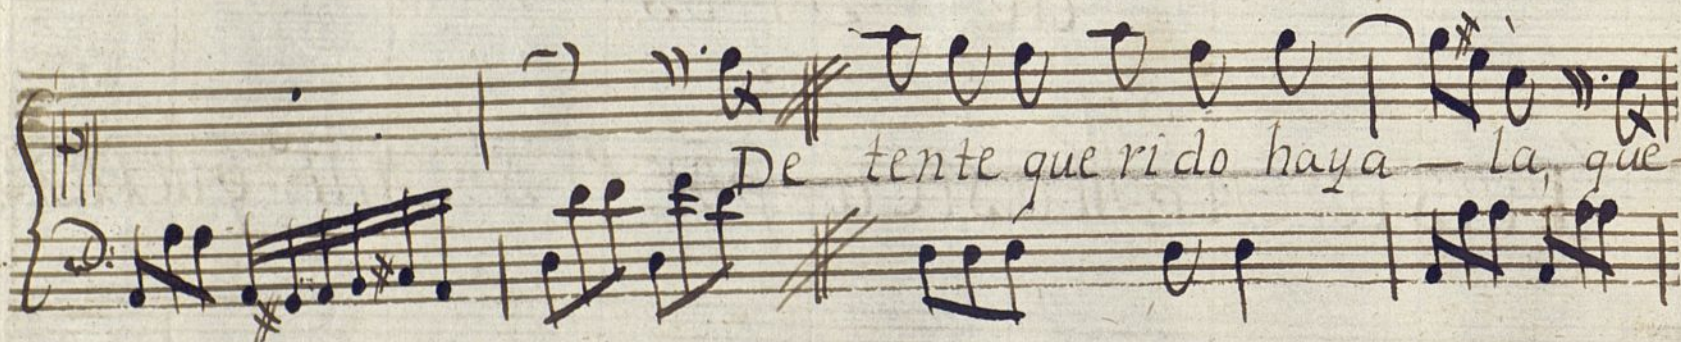 De tente que rido haya — la, que